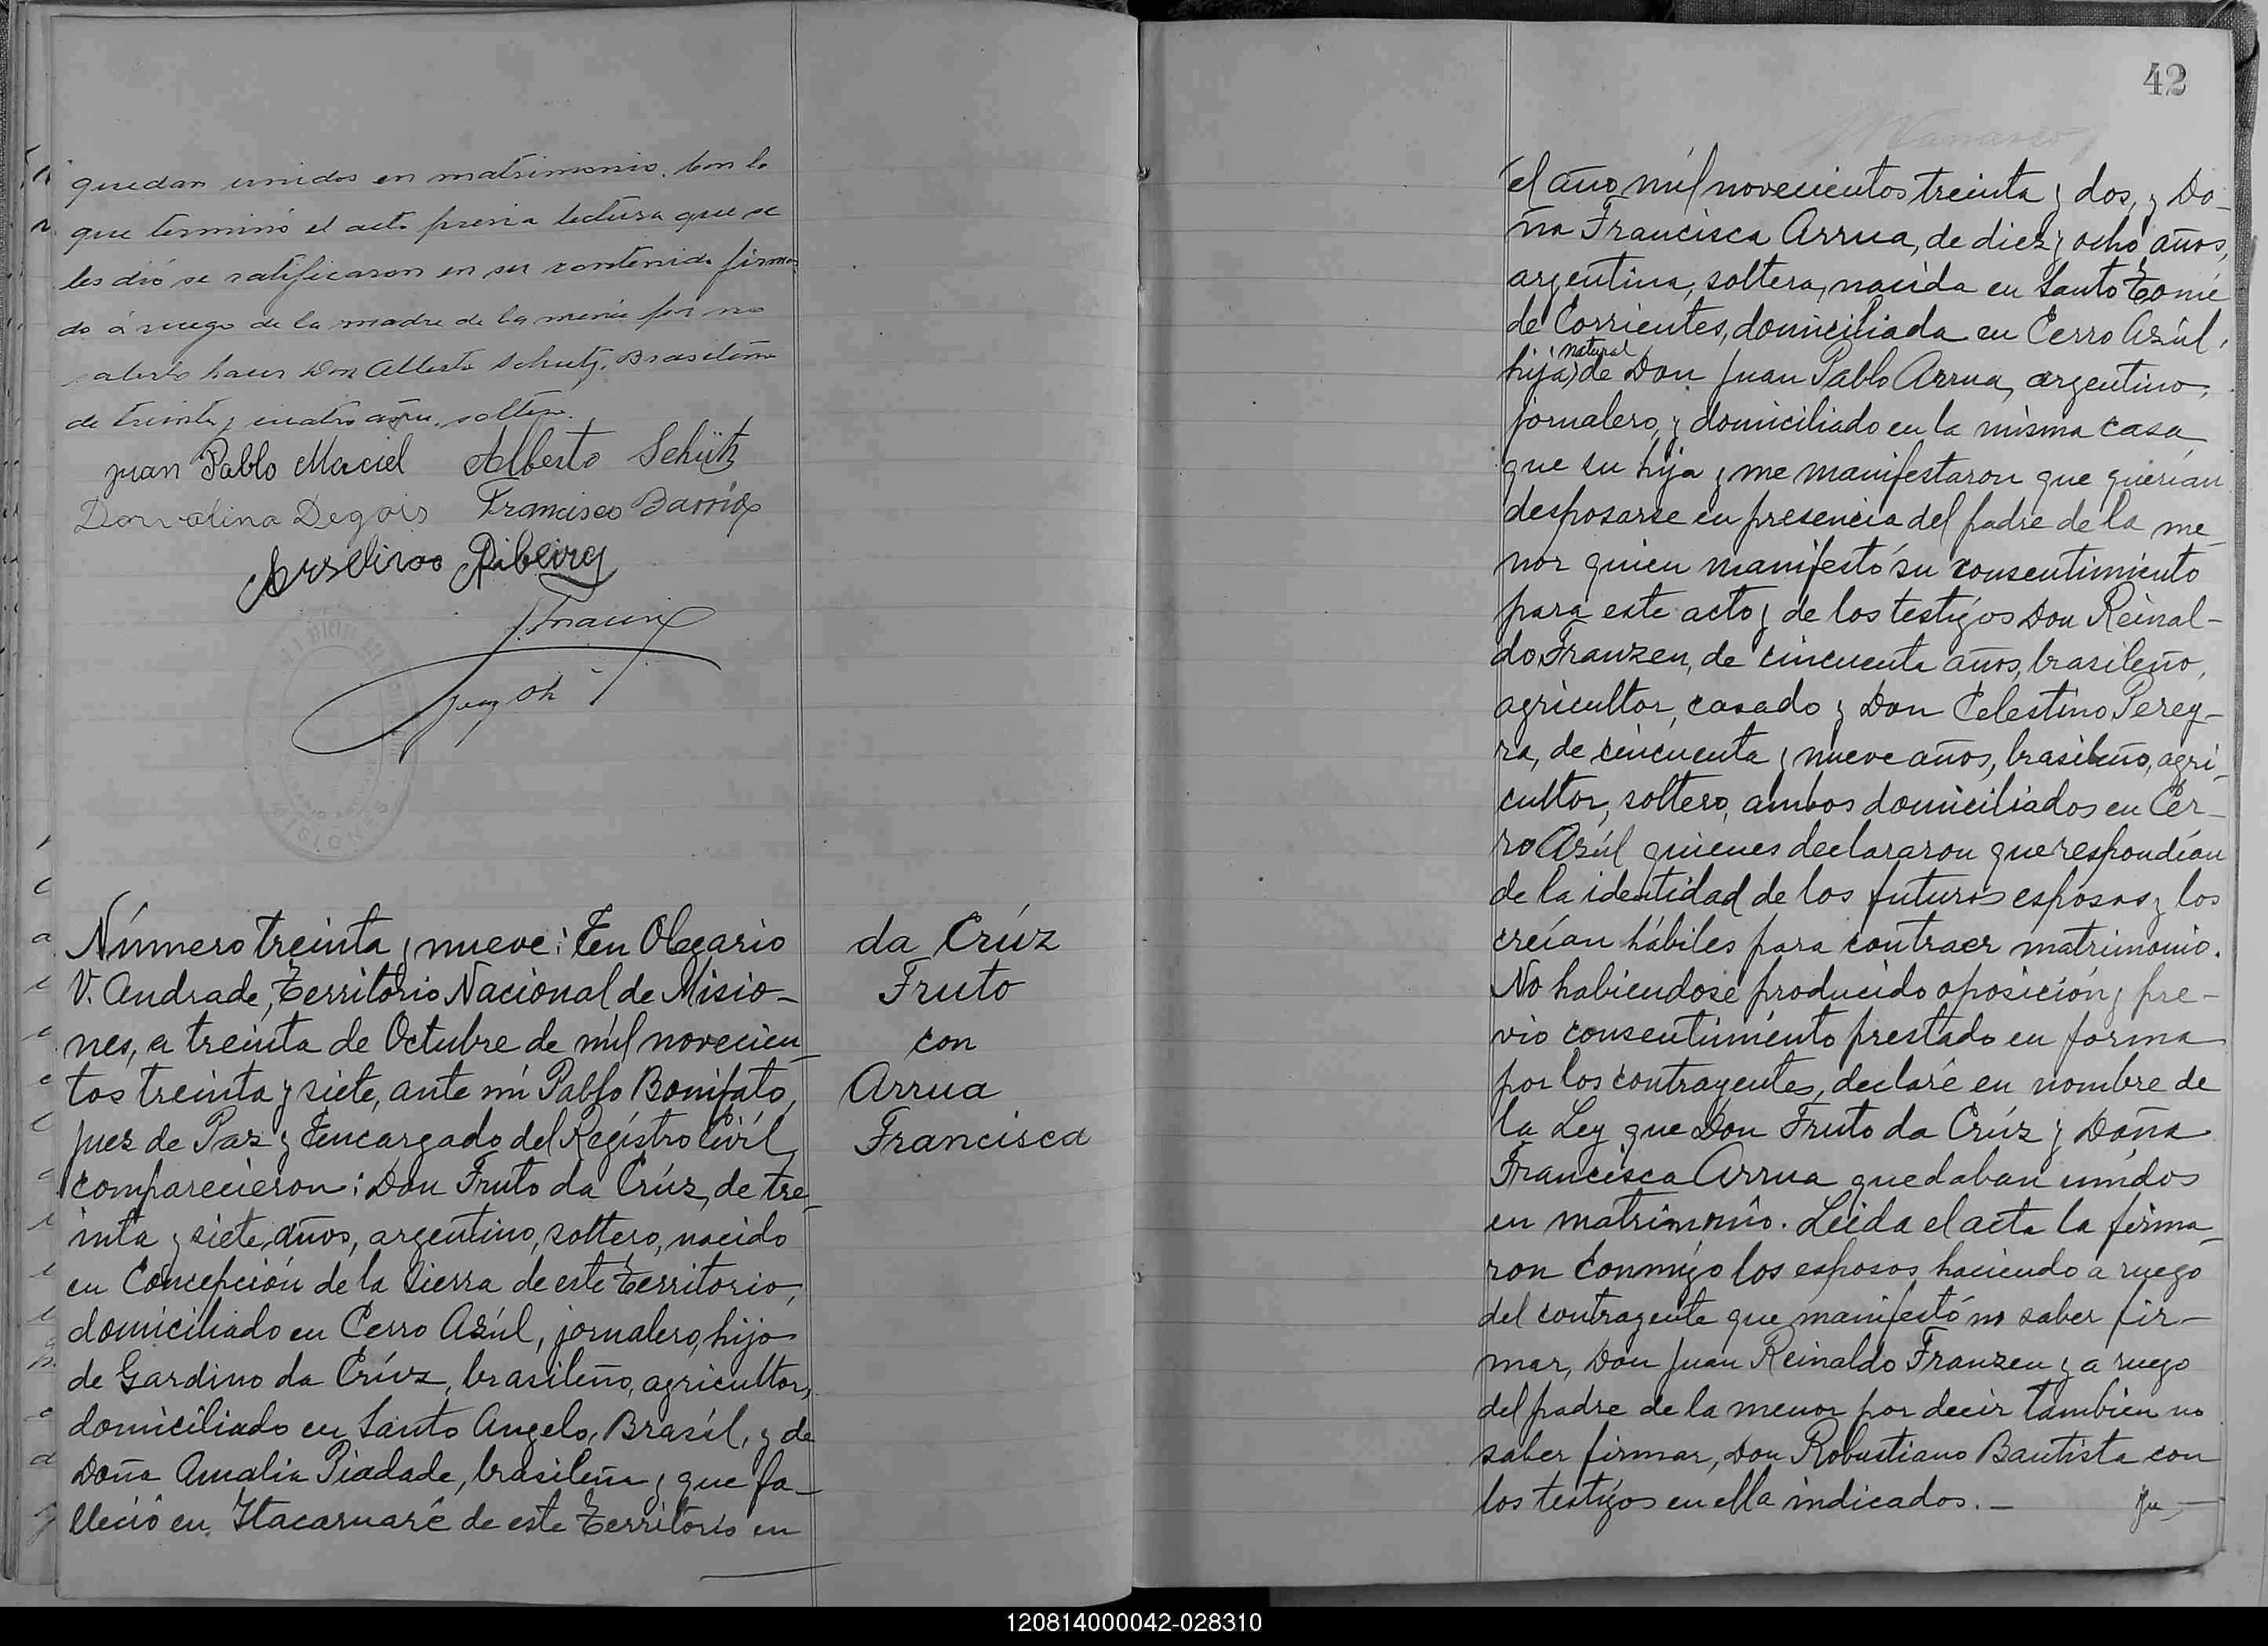 quedan unidos en matrimonio. Con lo
que terminó el acto previa lectura que se
les dió se ratificaron en su contenido firman
do á ruego de la madre de la menor por no
saberlo hacer Don Alberto Schutz, Brasileño
de treinta y cuatro años, soltero.
Juan Pablo Maciel Alberto Schütz
Dorvalina Degois Francisco Barrios
Ribeiro
MISIONES
Número treinta y nueve: En Olegario
V. Andrade, Territorio Nacional de Misio-
nes, a treinta de Octubre de mil novecien-
tos treinta y siete, ante mi Pablo Bonifato,
juez de Paz y Encargado del Regístro Civíl,
comparecieron: Don Fruto da Crúz, de tre-
inta y siete años, argentino, soltero, nacido
en Concepción de la Sierra de este Territorio,
domiciliado en Cerro Azúl, jornalero, hijo
de Gardino da Crúz, brasileño, agricultor,
domiciliado en Santo Angelo, Brasíl, y de
Doña Amalia Piadade, brasileña y que fa-
lleció en Itacaruaré de este Territorio en
da Crúz
Fruto
con
Arrua
Francisca
42
el año mil novecientos treinta y dos, y Do-
ña Francisca Arrua, de diez y ocho años,
argentina, soltera, nacida en Santo Tomé
de Corrientes, domiciliada en Cerro Azúl,
hija (natural) de Don Juan Pablo Arrua, argentino,
jornalero, y domiciliado en la misma casa
que su hija y me manifestaron que querían
desposarse en presencia del padre de la me-
nor quien manifestó su consentimiento
para este acto y de los testigos Don Reinal-
do Franzen, de cincuenta años, brasileño,
agricultor, casado y Don Celestino Perey-
ra, de cincuenta y nueve años, brasileño, agri-
cultor, soltero, ambos domiciliados en Cer-
ro Azúl quienes declararon que respondían
de la identidad de los futuros esposos y los
creían hábiles para contraer matrimonio.
No habiendose producido oposición y pre-
vio consentimiento prestado en forma
por los contrayentes, declaré en nombre de
la Ley que Don Fruto da Crúz y Doña
Francisca Arrua quedaban unidos
en matrimonio. Leida el acta la firma-
ron conmigo los esposos haciendo a ruego
del contrayente que manifestó no saber fir-
mar, Don Juan Reinaldo Franzen y a ruego
del padre de la menor por decir tambien no
saber firmar, Don Robustiano Bautista con
los testigos en ella indicados.—
120814000042-028310